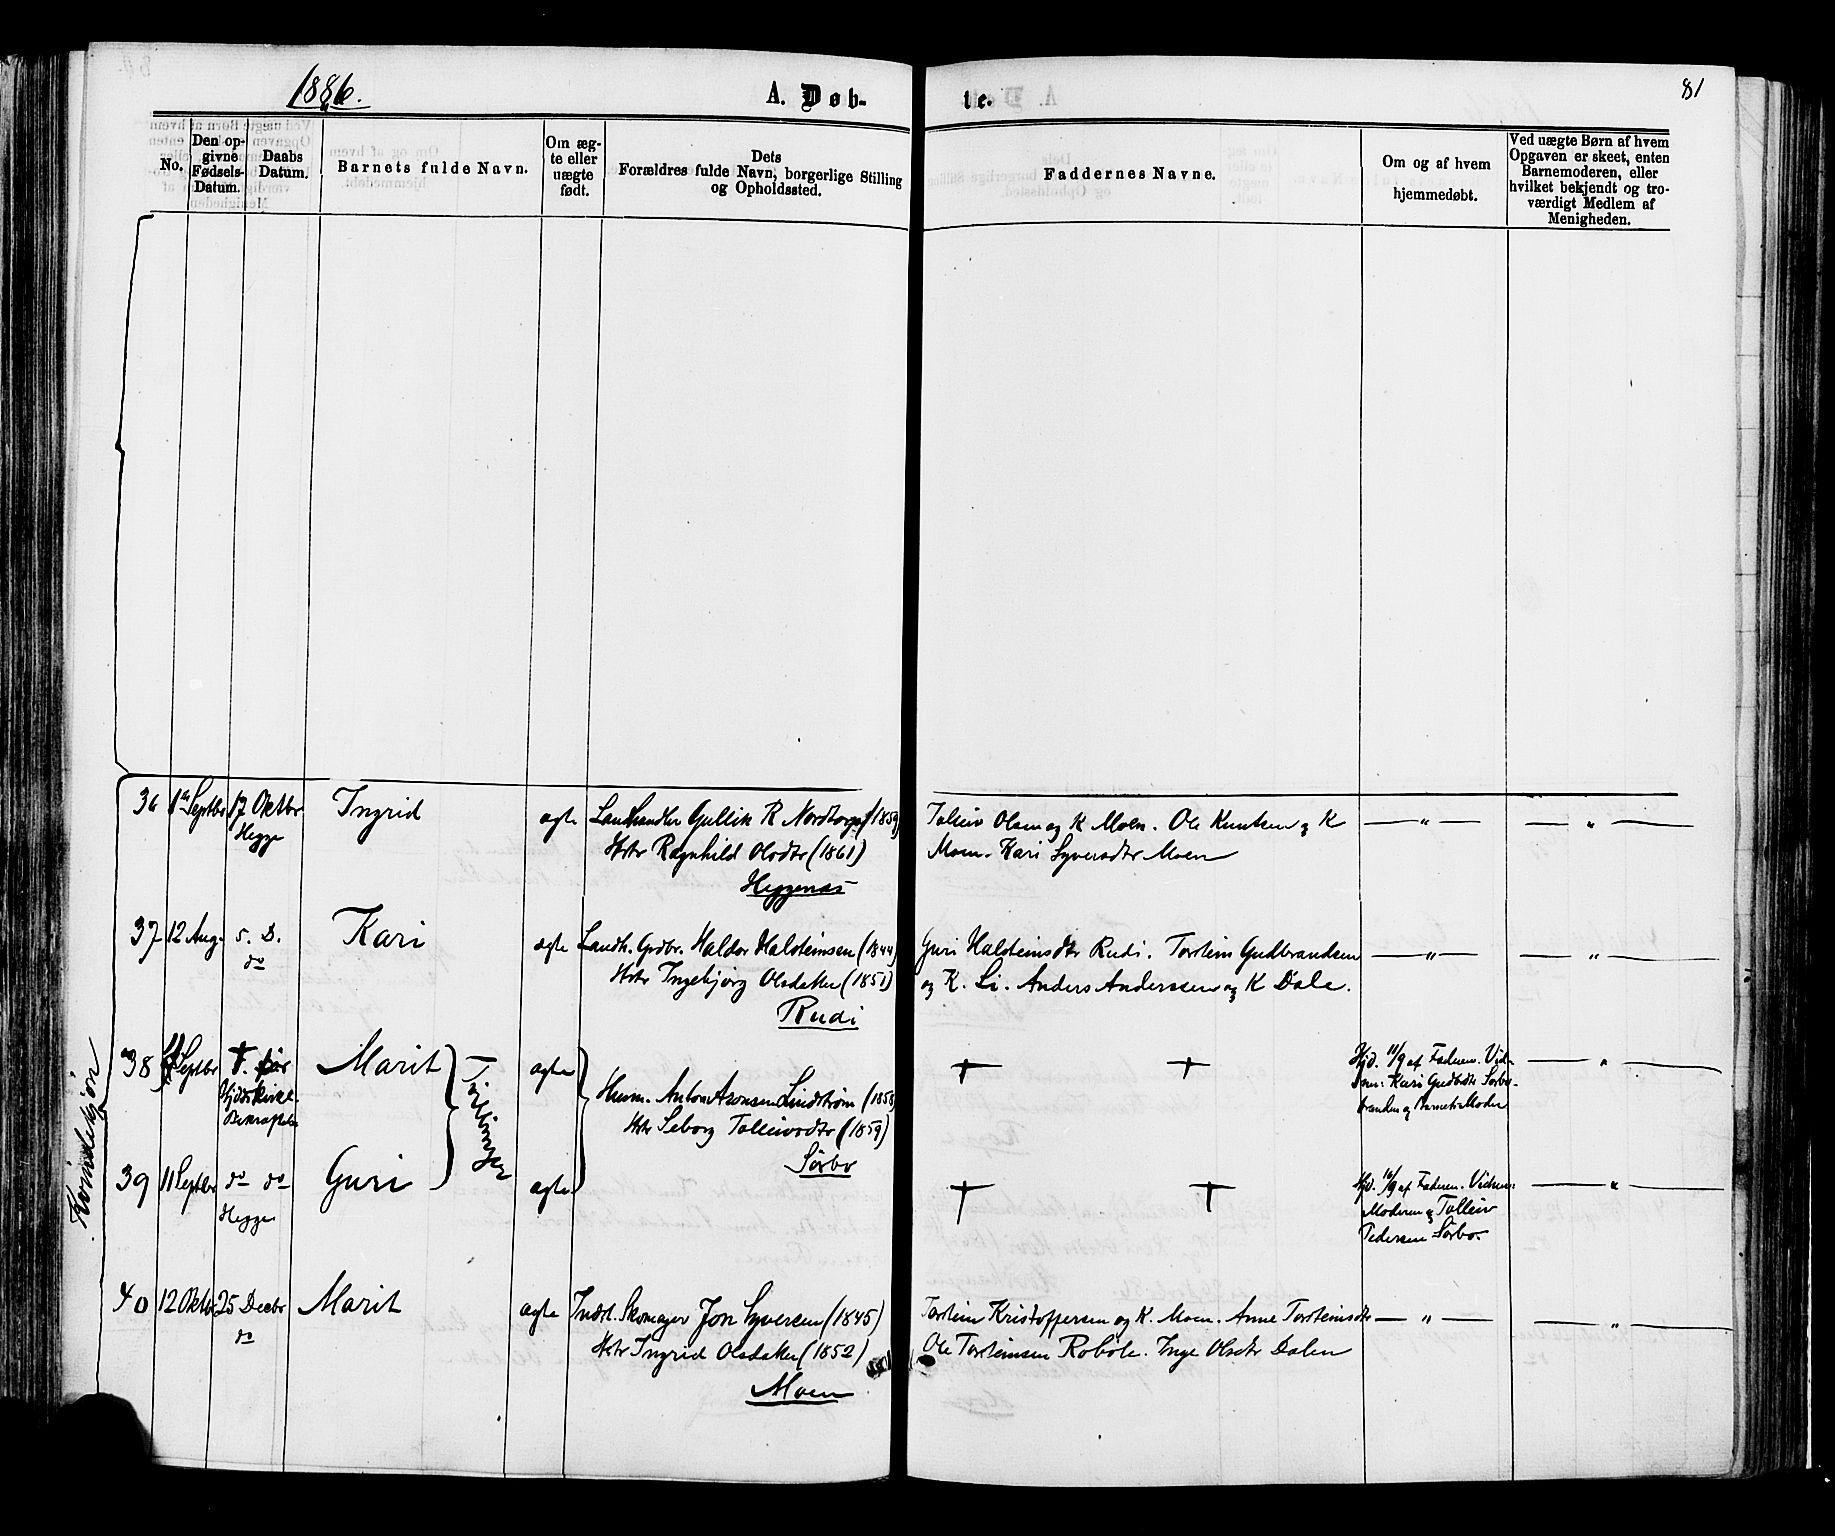 1886.
A. Døb-
te.
81
No.
Den op-
givne
Fødsels-
Datum.
Daabs
Datum.
Barnets fulde Navn.
Om æg-
te eller
uægte
født.
Dets
Forældres fulde Navn, borgerlige Stilling
og Opholdssted.
Faddernes Navne.
Om og af hvem
hjemmedøbt.
Ved uægte Børn af hvem
Opgaven er skeet, enten
Barnemoderen, eller
hvilket bekjendt og tro-
værdigt Medlem af
Menigheden.
36 1ste Septbr 17 Oktbr Ingrid ægte Landhandler Gullik R Nordtorps (1859) Tolleiv Olsen og K Moen. Ole Knutsen og K — " — — " —
Hegge Hstr Ragnhild Olsdtr (1861) Moen. Kari Syversdtr Moen
Heggenæs
37 12 Aug. 5. D. Kari ægte Landh. Grdbr. Haldor Halsteinsen (1844) Guri Halsteinsdtr Rudi. Torstein Gudbrandsen — " — — " —
do Hstr Ingebjørg Olsdatter (1851) og K. Li. Anders Anderssen og K Dale.
Rudi
38 11 Septbr † før Marit ægte † † Hjd. 11/9 af Faderen. Vid- — " —
Hjd. kirkl. Husm. Anton Aronsen Lindstrøm (1858) Kari Gudbdtr Sørbo-
Bekræftelse Tvillinger Hstr Seborg Tolleivsdtr (1859) og Barnets Moder
Sørbo
39 11 Septbr do do Guri ægte † † Hjd. 11/9 af Faderen. Vidnen: — " —
Hegge Moderen og Tolleiv
Pedersen Sørbo.
40 12 Oktbr 25 Decbr Marit ægte Indst. Skomager Jon Syversen (1845) Torstein Kristoffersen og K. Moen. Anne Torsteinsdtr — " — — " —
do Hstr Ingrid Olsdatter (1852) Ole Torsteinsen Robøle. Inge Olsdtr Dalen
Moen
Kvindekjøn